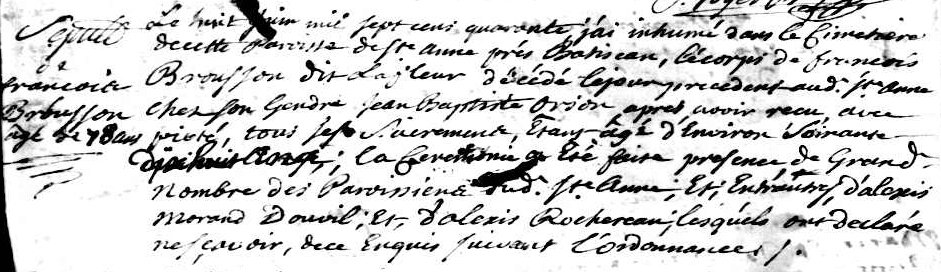 Sepult
de
francois
Brousson
agé de 78 ans
Le huit juin mil sept cens quarante j'ai inhumé dans le Cimetiere
de cette Paroisse de Ste Anne prés Batiscan, le corps de francois
Brousson dit Lafleur décédé le jour precedent aud. Ste Anne
Chez son Gendre jean Baptiste orion apres avoir recu avec
pieté, tous ses Sacremens, Etant agé d'Environ Soixante
dixhuit Ans; la Ceremonie a Eté faite presence de Grand
nombre des Paroissiens dud. Ste Anne, Et, Entrautres, d'alexis
morand Douvil; Et, d'alexis Rochereau; lesquels ont declaré
ne sçavoir, de ce Enquis suivant l'ordonnance